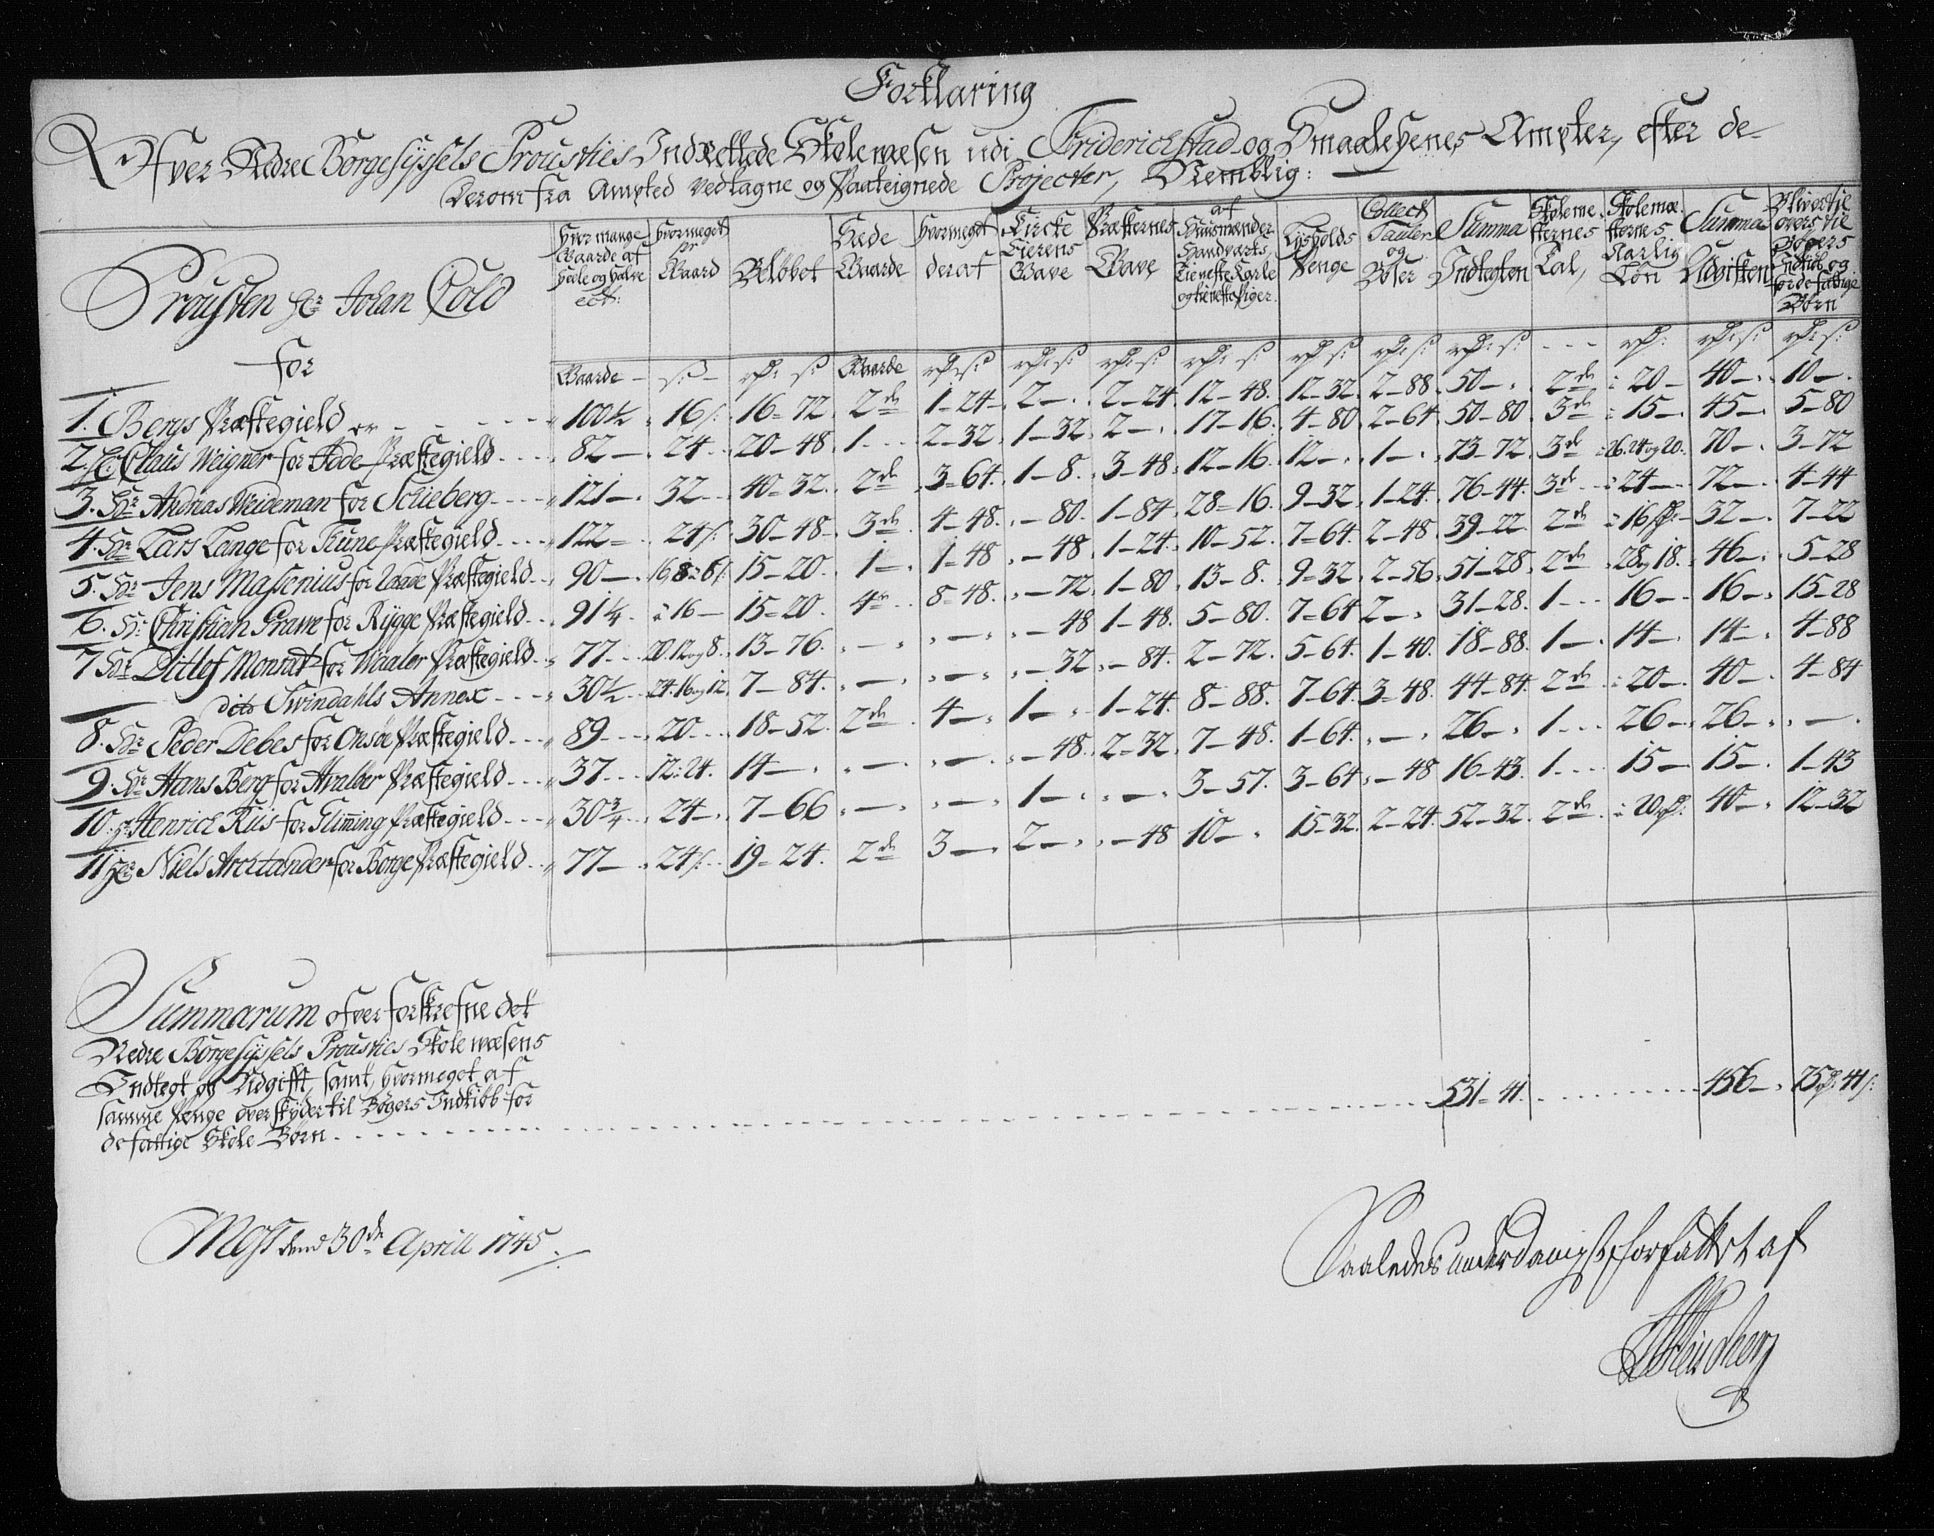 Forklaring
Ofver Nedre Borgesyssels Prousties Indrettede Skolewæsen udi Friderichstad og Smaalehnes Ampter, efter de
derom fra Ampted vedtagne og Paateignede Projecter, Nemblig:
Prousten Hr Johan Cold
for
Hvor mange Gaarde af Heele og Halve ect:
hvormeget pr Gaard
Beløbet
Øede Gaarde
hvormeget deraf
Kircke Eierens Gave
Præsternes Gave
af Huusmænder Handværks Tieneste Karle og tieneste Piger
Lysholds Penge
Collect Tauler og Bøter
Summa Indtegten
Skoleme- sternes Tal,
Skolemæ- sternes Aarlig Løn
Summa Udgiften
Bliver til overs til Bøgers Indkiøb og for de fattige Børn
Gaarde s: rd: s: Gaarde rd: s: rd: s: rd: s: rd: s: rd: s: rd: s: rd: s: - - - rd: rd: s: rd: s:
1. Bergs Præstegield er - - - 100½ 16 s. 16 = 72 2de 1 - 24 2 - 2 - 24 12 - 48 12 - 32 2 - 88 50 - 2de à 20 - 40 - 10 -
2. Hr: Claus Weigner for Ide Præstegield 82 - 24 - 20 - 48 1 - 2 - 32 1 - 32 2 - 17 - 16 4 - 80 2 - 64 50 - 80 3de à 15 - 45 - 5 - 80
3. Hr Andreas Weideman for Schieberg 121 - 32 - 40 = 32 2de 3 = 64 1 - 8 3 - 48 12 - 16 12 - 1 - 73 - 72 3de à 26. 24 og 20. 70 - 3 - 72
4. Hr Lars Lange for Thune Præstegield 122 = 24 s. 30 - 48 3de 4 - 48 - 80 1 - 84 28 = 16 9 - 32 1 - 24 76 - 44 3de à 24 - 72 - 4 - 44
5. Hr Jens Massenius for Raade Præstegield 90 - 16, 8 à 6 s. 15 - 20 1 - 1 - 48 - 48 1 - 24 10 - 52 7 - 64 2 - 48 39 - 22 2de à 16 rd: 32 - 7 - 22
6. Hr: Christian Grawe for Rygge Præstegield 91¼ à 16 - 15 = 20 4re 8 = 48 - 72 1 - 80 13 - 8 9 - 32 2 - 56 51 - 28 2de 28 og 18. 46 - 5 - 28
7 Hr Ditlef Monrat for Waaler Præstegield 77 20. 12 og 8. 13 - 76 - - - 48 1 - 48 5 - 80 7 - 64 2 - 31 - 28 1 - 16 - 16 - 15 - 28
dito Svindahls Annex 30½ 24. 16 og 12 7 - 84 - - - 32 - 84 2 - 72 5 - 64 1 - 40 18 - 88 1 - 14 - 14 - 4 - 88
8. Hr Peder Debes for Onsøe Præstegield 89 20 18 - 52 2de 4 - 1 - 1 - 24 8 - 88 7 - 64 3 = 48 44 - 84 2de à 20 - 40 - 4 - 84
9. Hr Hans Berg for Hvaløer Præstegield 37 12 = 24 14 - - - - 48 2 - 32 7 - 48 1 - 64 - 26 - 1 - 26 - 26 - -
10. Hr Henrich Riis for Glimming Præstegield 30¾ 24 - 7 - 66 - - 1 - - 3 - 57 3 - 64 - 48 16 - 43 1 - 15 - 15 - 1 - 43
11 Hr Niels Arctander for Borge Præstegield 77 - 24 s. 19 = 24 2de 3 - 2 - - 48 10 - 15 - 32 2 - 24 52 - 32 2de à 20 rd: 40 - 12 - 32
Summarum ofver forskrefne det
Nedre Borgesyssels Prousties Skolewæsens
Indtegt og Udgifft, samt, hvormeget af
samme Penge overskyder til Bøgers Indkiøb for
de fattige Skole Børn 531 = 41 456 - 75 rd: 41 s:
Moss dend 30de Aprill 1745
Saaledes underdanigst forfattet af